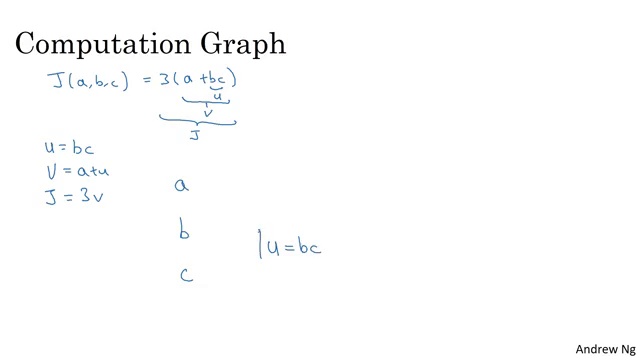 Computation Graph
J(a,b,c) = 3(a+bc)
u
v
J
u = bc
V = a+u
J = 3v
a
b
c
u = bc
Andrew Ng